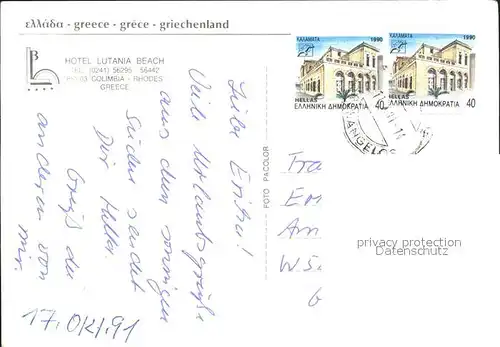 ελλάδα - greece - grèce - griechenland
HOTEL LUTANIA BEACH
TEL. (0241) 56295 56442
COLIMBIA - RHODES
GREECE
B
ΚΑΛΑΜΑΤΑ 1990
HELLAS 40
ΕΛΛΗΝΙΚΗ ΔΗΜΟΚΡΑΤΙΑ
ΚΑΛΑΜΑΤΑ 1990
HELLAS 40
ΕΛΛΗΝΙΚΗ ΔΗΜΟΚΡΑΤΙΑ
ANGELOS
FOTO PACOLOR
Liebe Erika!
Viele Urlaubsgrüße
aus dem sonnigen
Süden sendet
Dir Helly.
Grüß die
anderen von
mir.
17. Okt. 91
Fra
Er
Am
W5
6
privacy protection
Datenschutz